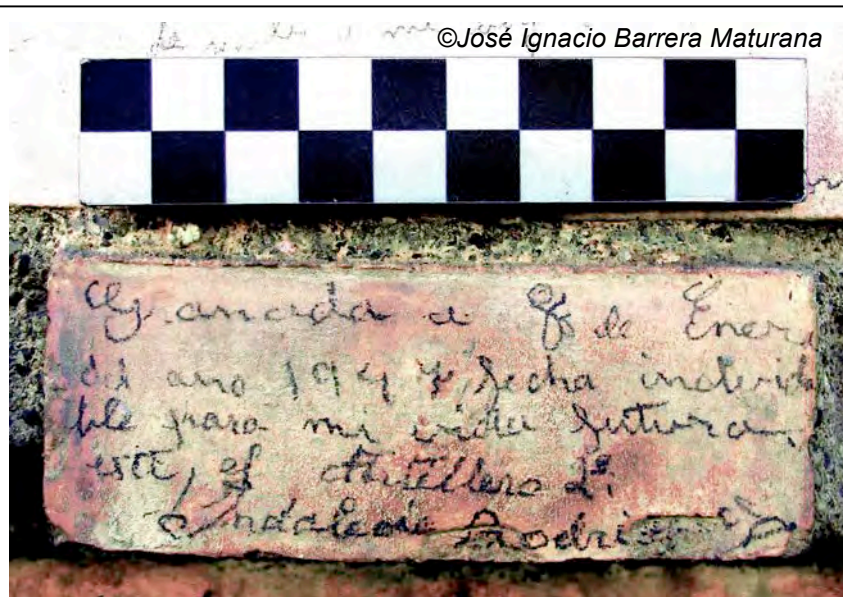 ©José Ignacio Barrera Maturana
Granada a 8 de Enero
del año 1947, fecha inolvida
ble para mi vida futura,
este, el Artillero 2º.
Indalecio Rodrig